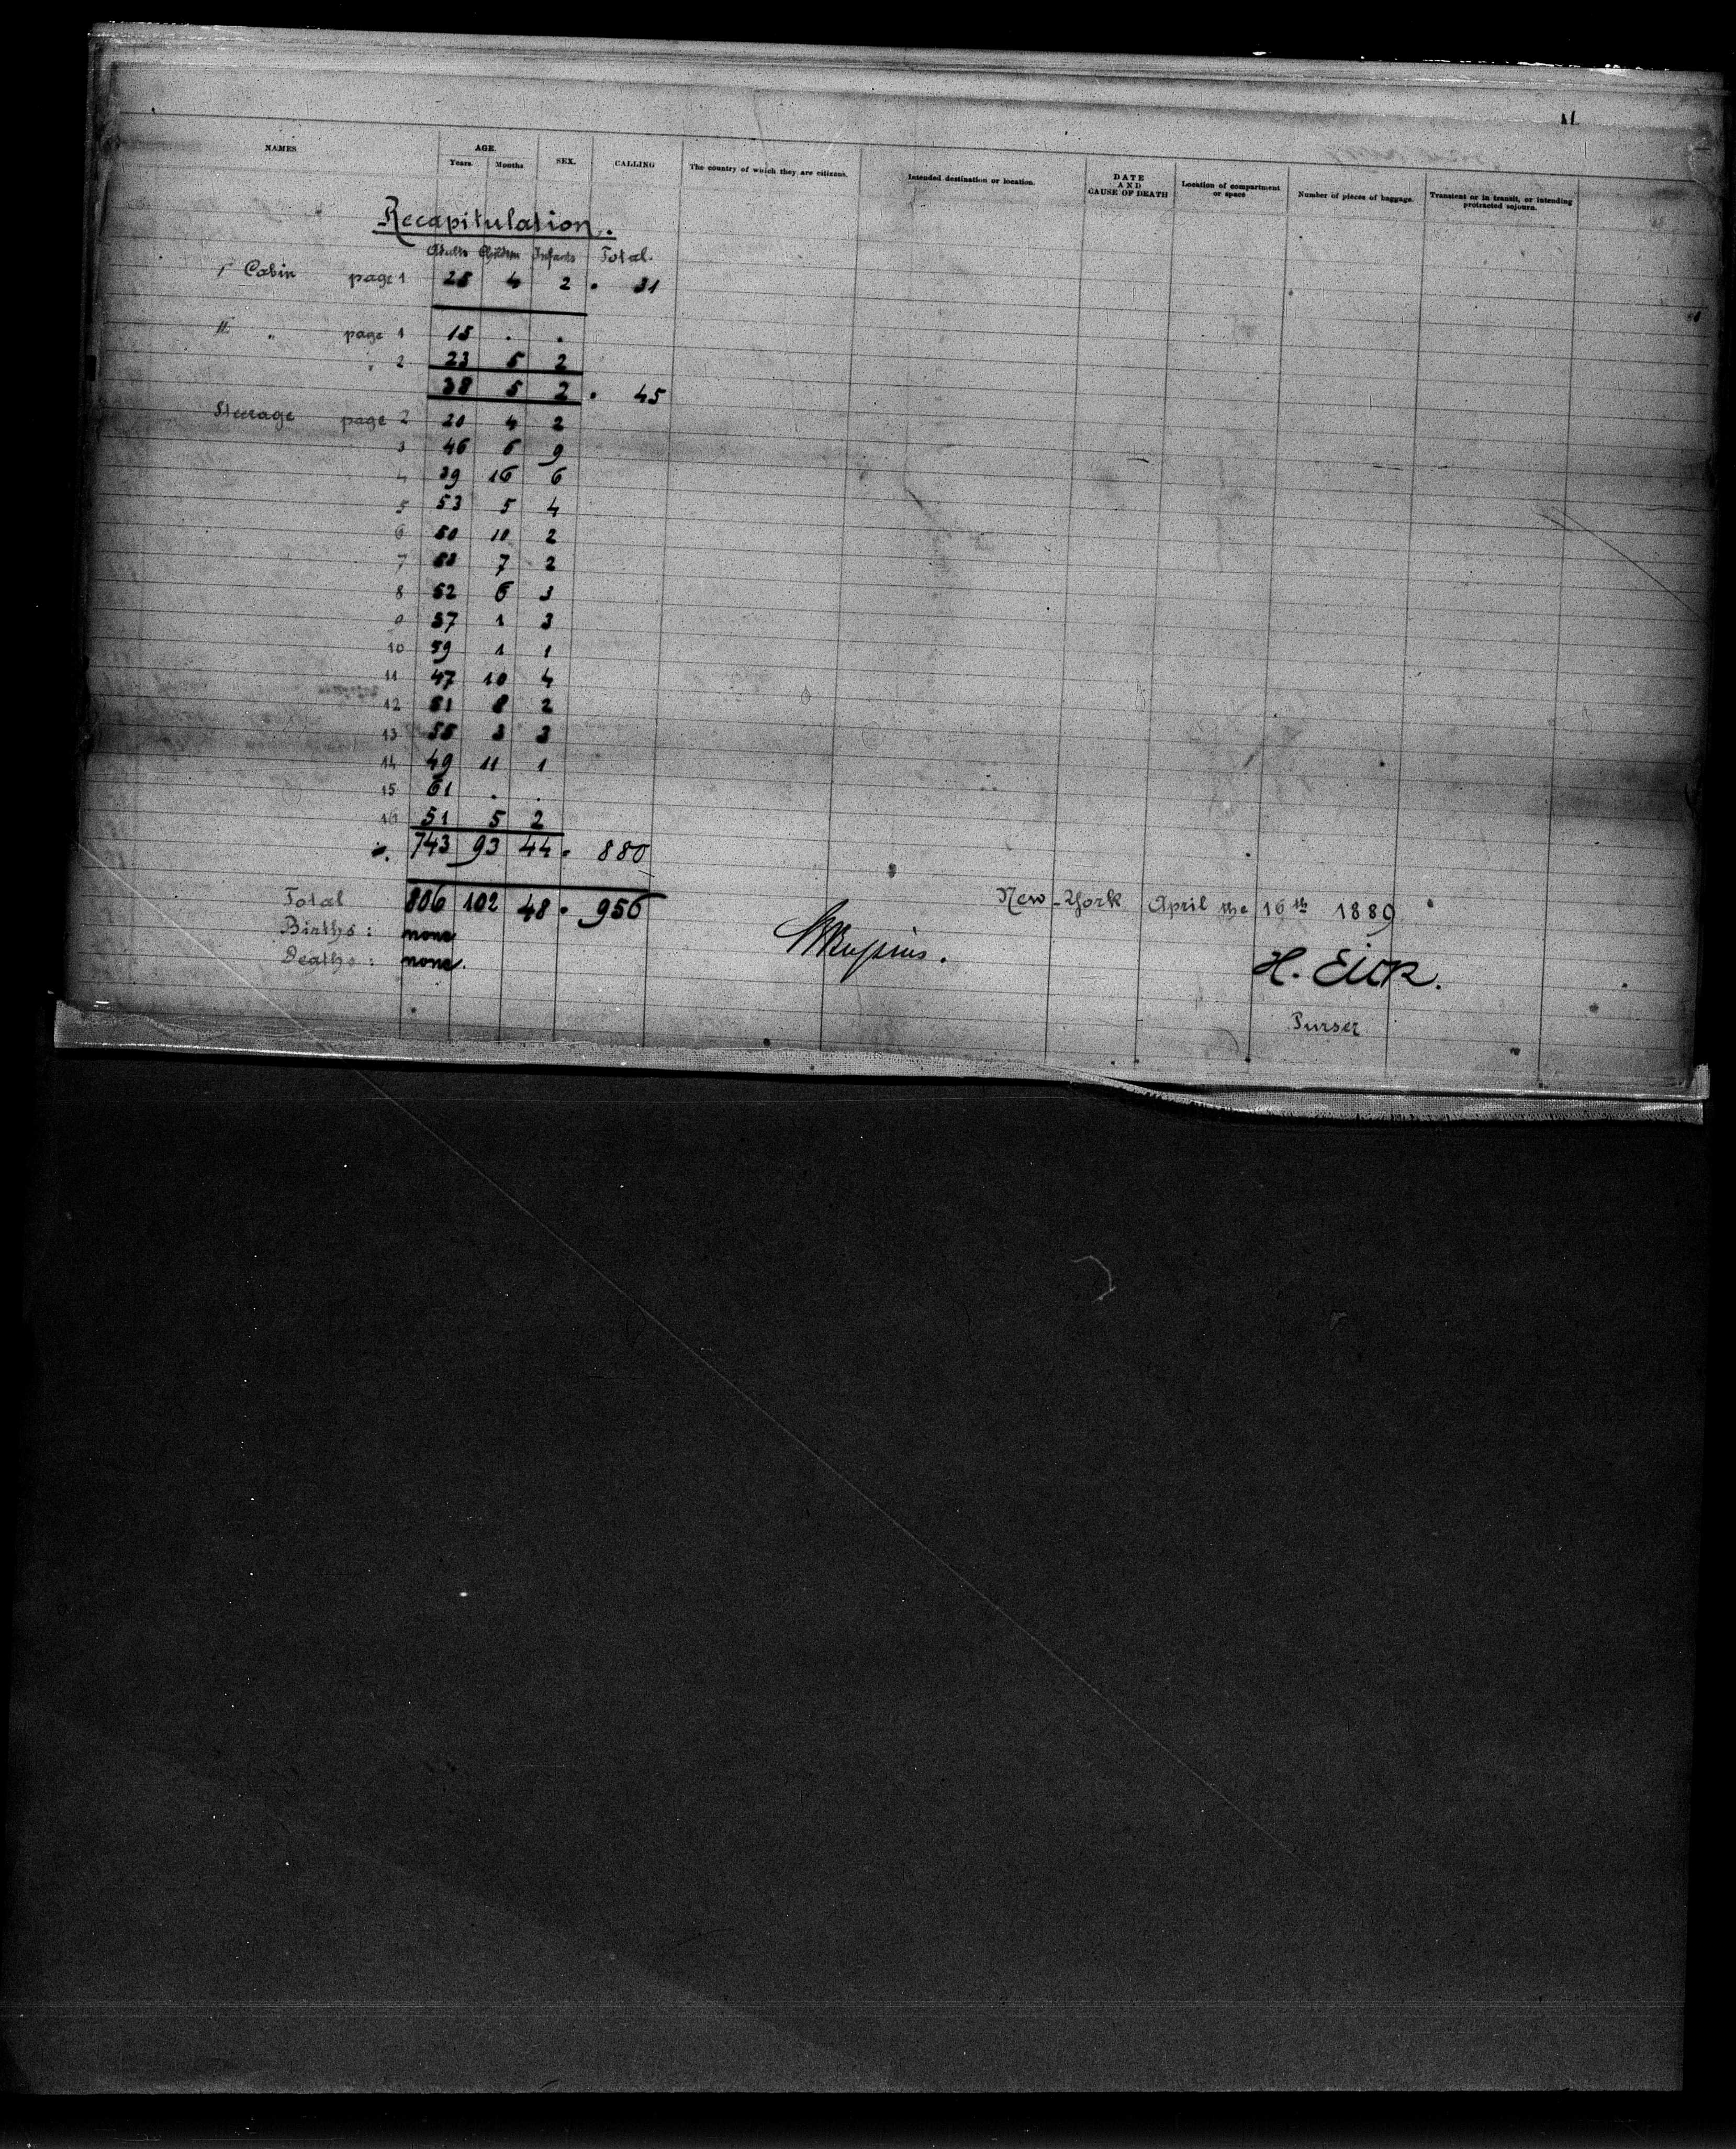 NAMES
AGE.
Years. Months
SEX.
CALLING
The country of which they are citizens.
Intended destination or location.
DATE
AND
CAUSE OF DEATH
Location of compartment
or space
Number of pieces of baggage.
Transient or in transit, or intending
protracted sojourn.
Recapitulation.
Adults Children Infants Total.
I Cabin page 1 25 4 2 . 31
II " page 1 15 . .
" 2 23 5 2
38 5 2 . 45
Steerage page 2 20 4 2
3 46 6 9
4 39 16 6
5 53 5 4
6 50 10 2
7 50 7 2
8 52 6 3
9 57 1 3
10 59 1 1
11 47 10 4
12 51 8 2
13 58 3 3
14 49 11 1
15 61 . .
16 51 5 2
743 93 44 . 880
Total 806 102 48 . 956
Births : none
Deaths : none.
New-York April the 16th 1889.
H. Eick.
Purser